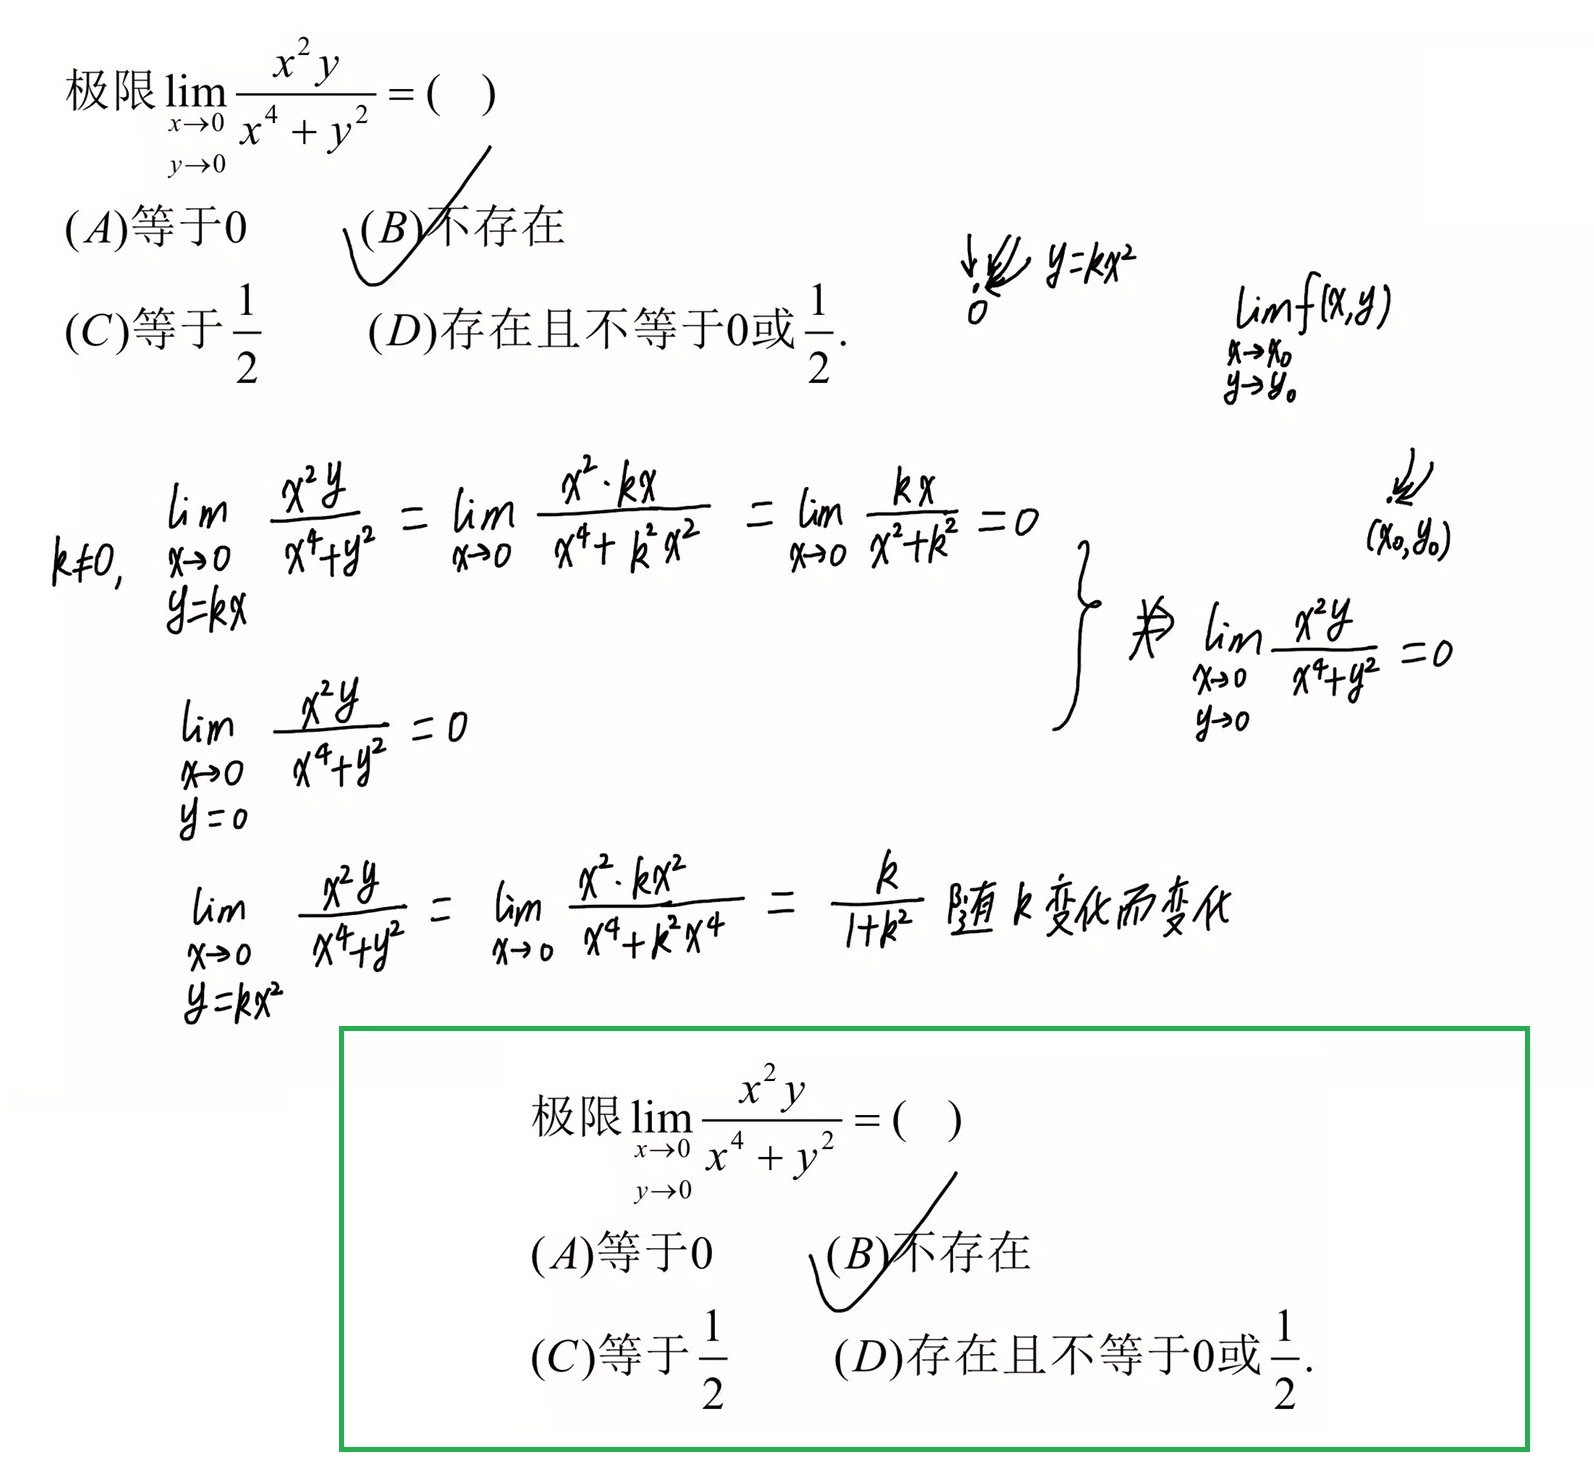 极限 lim x→0 y→0 x²y / (x⁴ + y²) = ( )
(A)等于0 (B)不存在
(C)等于 1/2 (D)存在且不等于0或 1/2.
0 y=kx²
lim f(x,y) x→x₀ y→y₀
(x₀,y₀)
k≠0, lim x→0 y=kx x²y / (x⁴+y²) = lim x→0 x²·kx / (x⁴+k²x²) = lim x→0 kx / (x²+k²) = 0
lim x→0 y=0 x²y / (x⁴+y²) = 0
} ⇏ lim x→0 y→0 x²y / (x⁴+y²) = 0
lim x→0 y=kx² x²y / (x⁴+y²) = lim x→0 x²·kx² / (x⁴+k²x⁴) = k / (1+k²) 随 k 变化而变化
极限 lim x→0 y→0 x²y / (x⁴ + y²) = ( )
(A)等于0 (B)不存在
(C)等于 1/2 (D)存在且不等于0或 1/2.